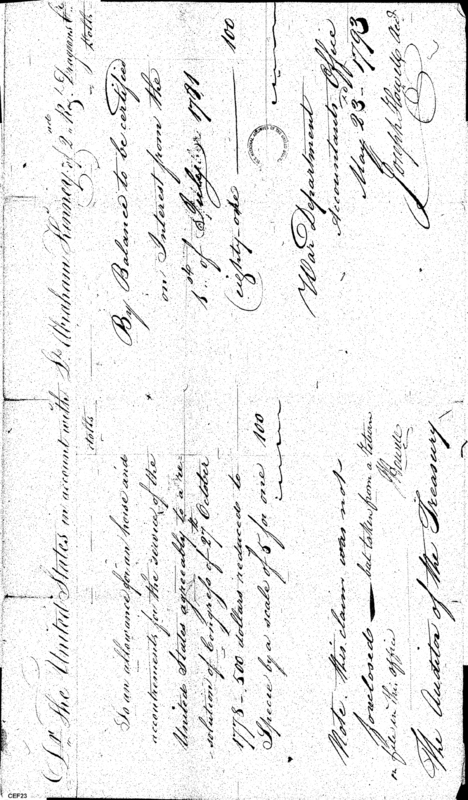 Dr. The United States in account with Lt. Abraham Kinney of 2nd Regt. Dragoons Cr.
dolls
Dolls
To an allowance for an horse and
accoutrements for the service of the
United States agreeably to a re-
solution of Congress of 27th October
1778 - 500 dollars reduced to
Specie by a scale of 5 for one 100
By Balance to be certified
on Interest from the
1781
eighty one 100
War Department
Accountants Office
May 23d 1793
Joseph Howell Acct.
Note. this claim was not
foreclosed but taken from a return
on file in this office
J Howell
The Auditor of the Treasury
CEF23